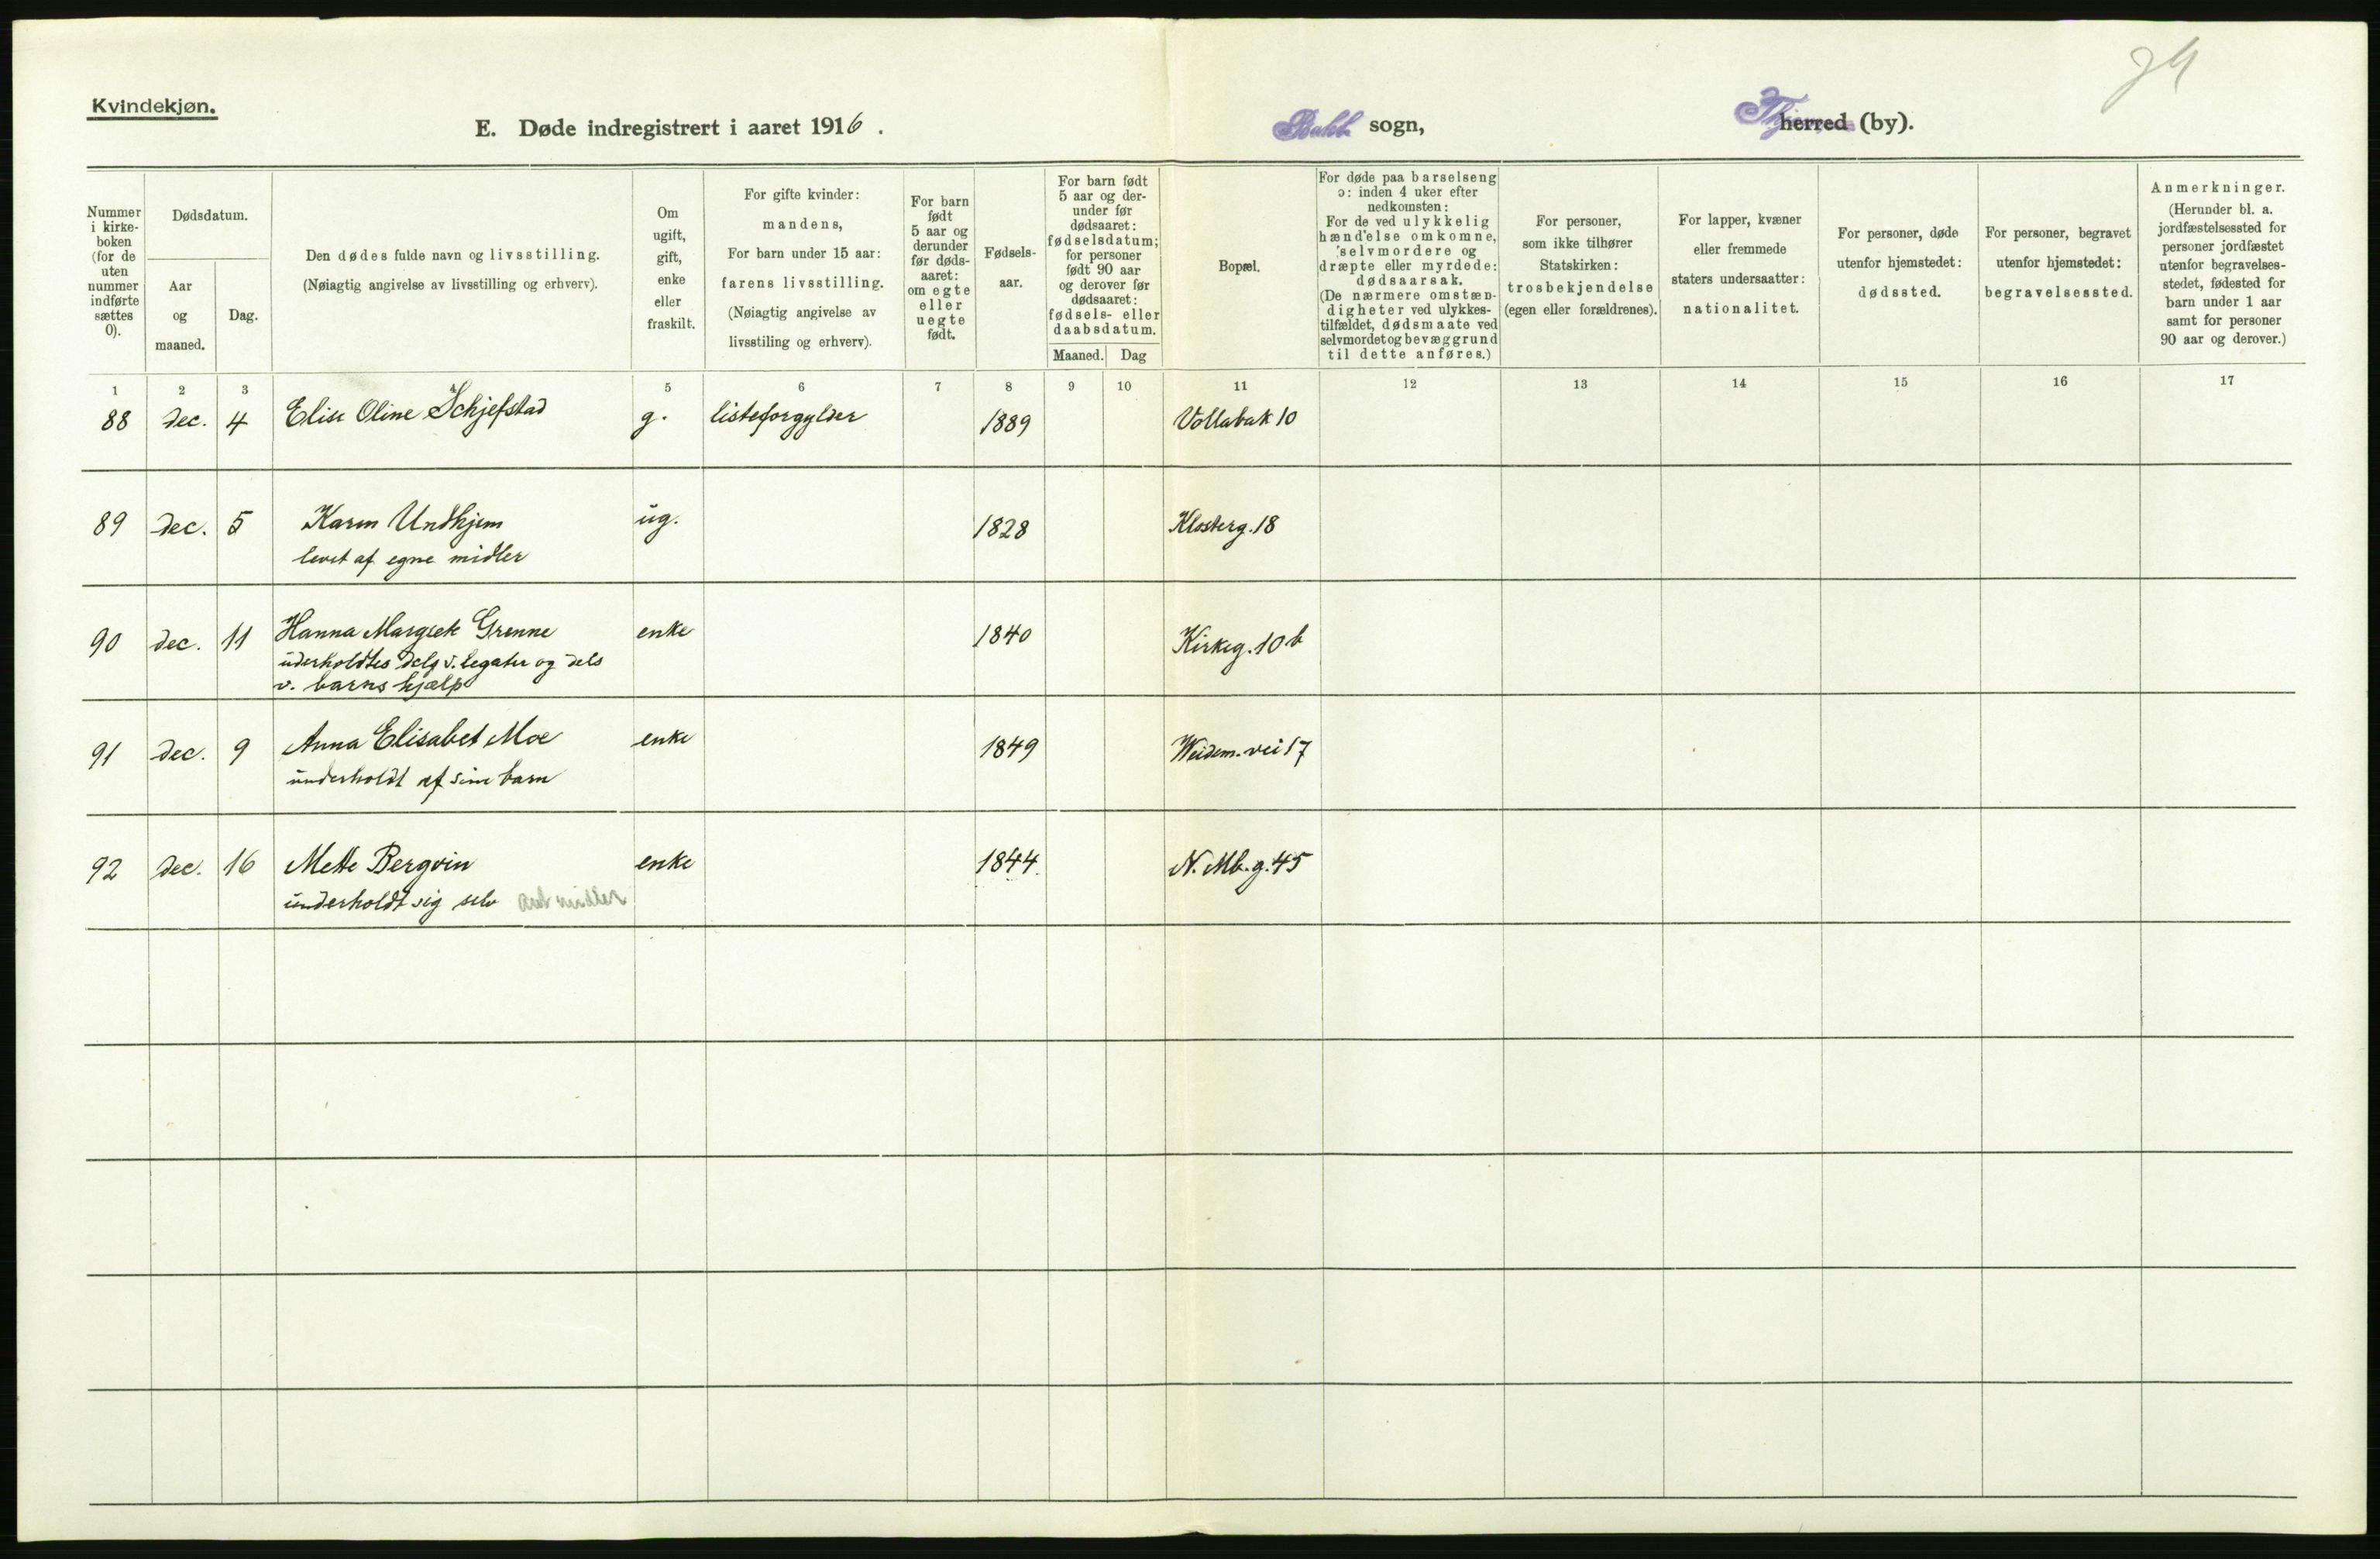 Kvindekjøn.
E. Døde indregistrert i aaret 1916.
Bakke sogn,
herred (by).
Nummer i kirke-boken (for de uten nummer indførte sættes 0).
Dødsdatum.
Aar og maaned.
Dag.
Den dødes fulde navn og livsstilling.
(Nøiagtig angivelse av livsstilling og erhverv).
Om ugift, gift, enke eller fraskilt.
For gifte kvinder:
mandens,
For barn under 15 aar:
farens livsstilling.
(Nøiagtig angivelse av
livsstiling og erhverv).
For barn født 5 aar og derunder før døds-aaret: om egte eller uegte født.
Fødsels-aar.
For barn født 5 aar og der-under før dødsaaret: fødselsdatum; for personer født 90 aar og derover før dødsaaret: fødsels- eller daabsdatum.
Maaned. Dag
Bopæl.
For døde paa barselseng ɔ: inden 4 uker efter nedkomsten:
For de ved ulykkelig hændelse omkomne, selvmordere og dræpte eller myrdede: dødsaarsak.
(De nærmere omstæn-digheter ved ulykkes-tilfældet, dødsmaate ved selvmordet og bevæggrund til dette anføres.)
For personer, som ikke tilhører Statskirken: trosbekjendelse (egen eller forældrenes).
For lapper, kvæner eller fremmede staters undersaatter: nationalitet.
For personer, døde utenfor hjemstedet: dødssted.
For personer, begravet utenfor hjemstedet: begravelsessted.
Anmerkninger.
(Herunder bl. a. jordfæstelsessted for personer jordfæstet utenfor begravelses-stedet, fødested for barn under 1 aar samt for personer 90 aar og derover.)
1 2 3 4 5 6 7 8 9 10 11 12 13 14 15 16 17
88 dec. 4 Elise Oline Schjefstad g. listeforgylder 1889 Vollabak 10
89 dec. 5 Karen Undhjem ug. 1828 Klosterg. 18
levet af egne midler
90 dec. 11 Hanna Margrete Grenne enke 1840 Kirkeg. 10 b
uderholdtes dels v. legater og dels
v. barns hjælp
91 dec. 9 Anna Elisabet Moe enke 1849 Weidem. vei 17
underholdt af sine barn
92 dec. 16 Mette Bergvin enke 1844 N. Mb. g. 45
underholdt sig selv midler